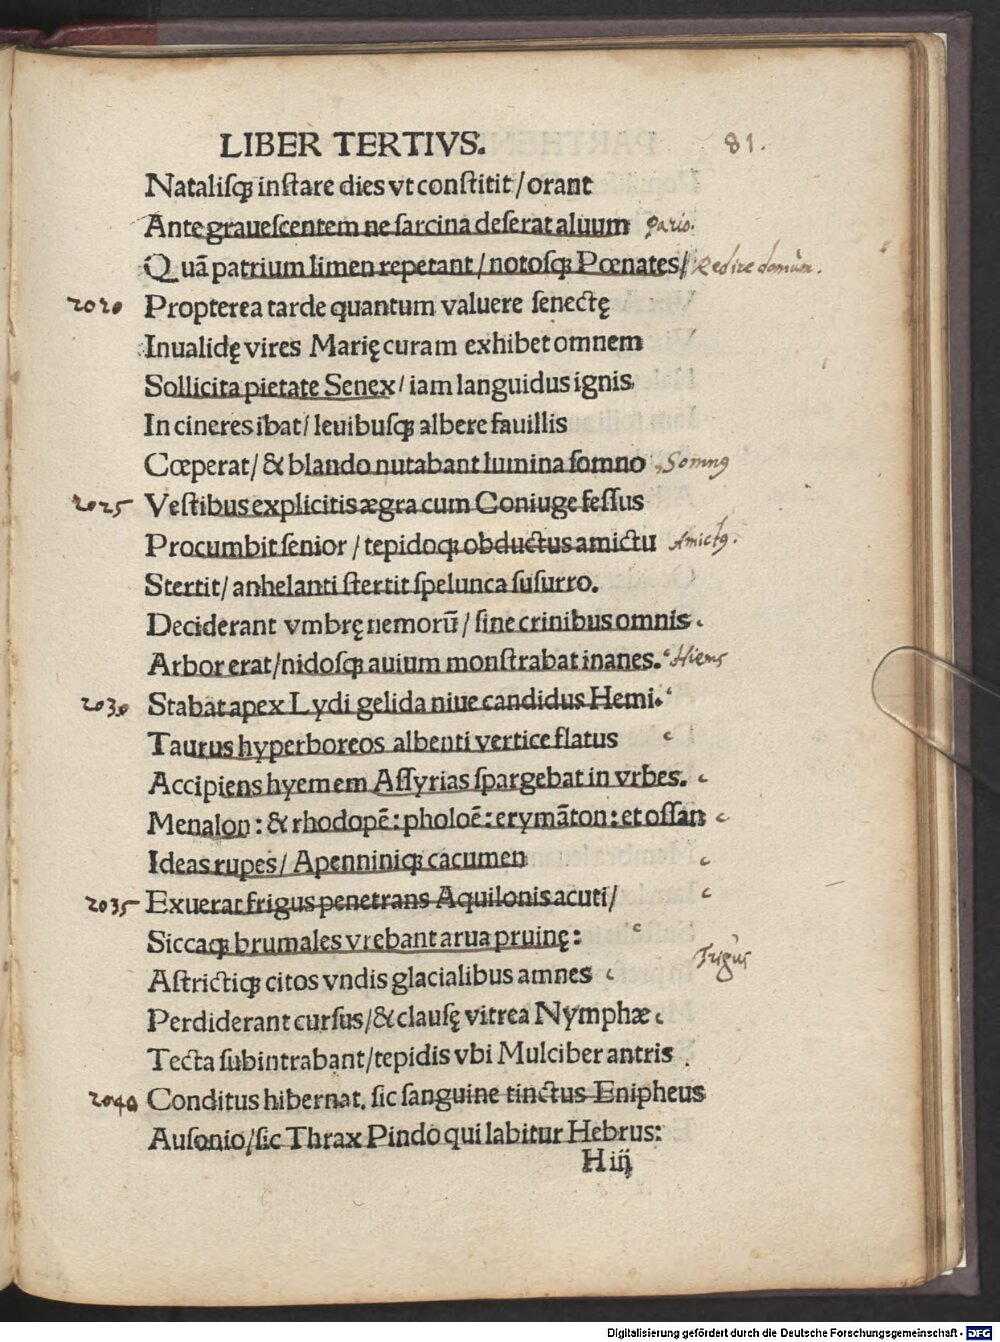 LIBER TERTIVS. 81.
Natalisqꝫ instare dies vt constitit / orant
Ante grauescentem ne sarcina deserat aluum pario.
Quã patrium limen repetant / notosqꝫ Pœnates / Redire domum.
2020 Propterea tarde quantum valuere senectę
Inualidę vires Marię curam exhibet omnem
Sollicita pietate Senex / iam languidus ignis
In cineres ibat / leuibusqꝫ albere fauillis
Cœperat / & blando nutabant lumina somno Somnꝰ
2025 Vestibus explicitis ægra cum Coniuge fessus
Procumbit senior / tepidoqꝫ obductus amictu Amictꝰ.
Stertit / anhelanti stertit spelunca susurro.
Deciderant vmbrę nemorũ / sine crinibus omnis
Arbor erat / nidosqꝫ auium monstrabat inanes. Hiems
2030 Stabat apex Lydi gelida niue candidus Hemi.
Taurus hyperboreos albenti vertice flatus
Accipiens hyemem Assyrias spargebat in vrbes.
Menalon : & rhodopẽ : pholoẽ : erymãton : et ossan
Ideas rupes / Apenniniqꝫ cacumen
2035 Exuerat frigus penetrans Aquilonis acuti /
Siccaqꝫ brumales vrebant arua pruinę :
Frigus
Astrictiqꝫ citos vndis glacialibus amnes
Perdiderant cursus / & clausę vitrea Nymphæ
Tecta subintrabant / tepidis vbi Mulciber antris
2040 Conditus hibernat. sic sanguine tinctus Enipheus
Ausonio / sic Thrax Pindo qui labitur Hebrus:
H iij
Digitalisierung gefördert durch die Deutsche Forschungsgemeinschaft - DFG